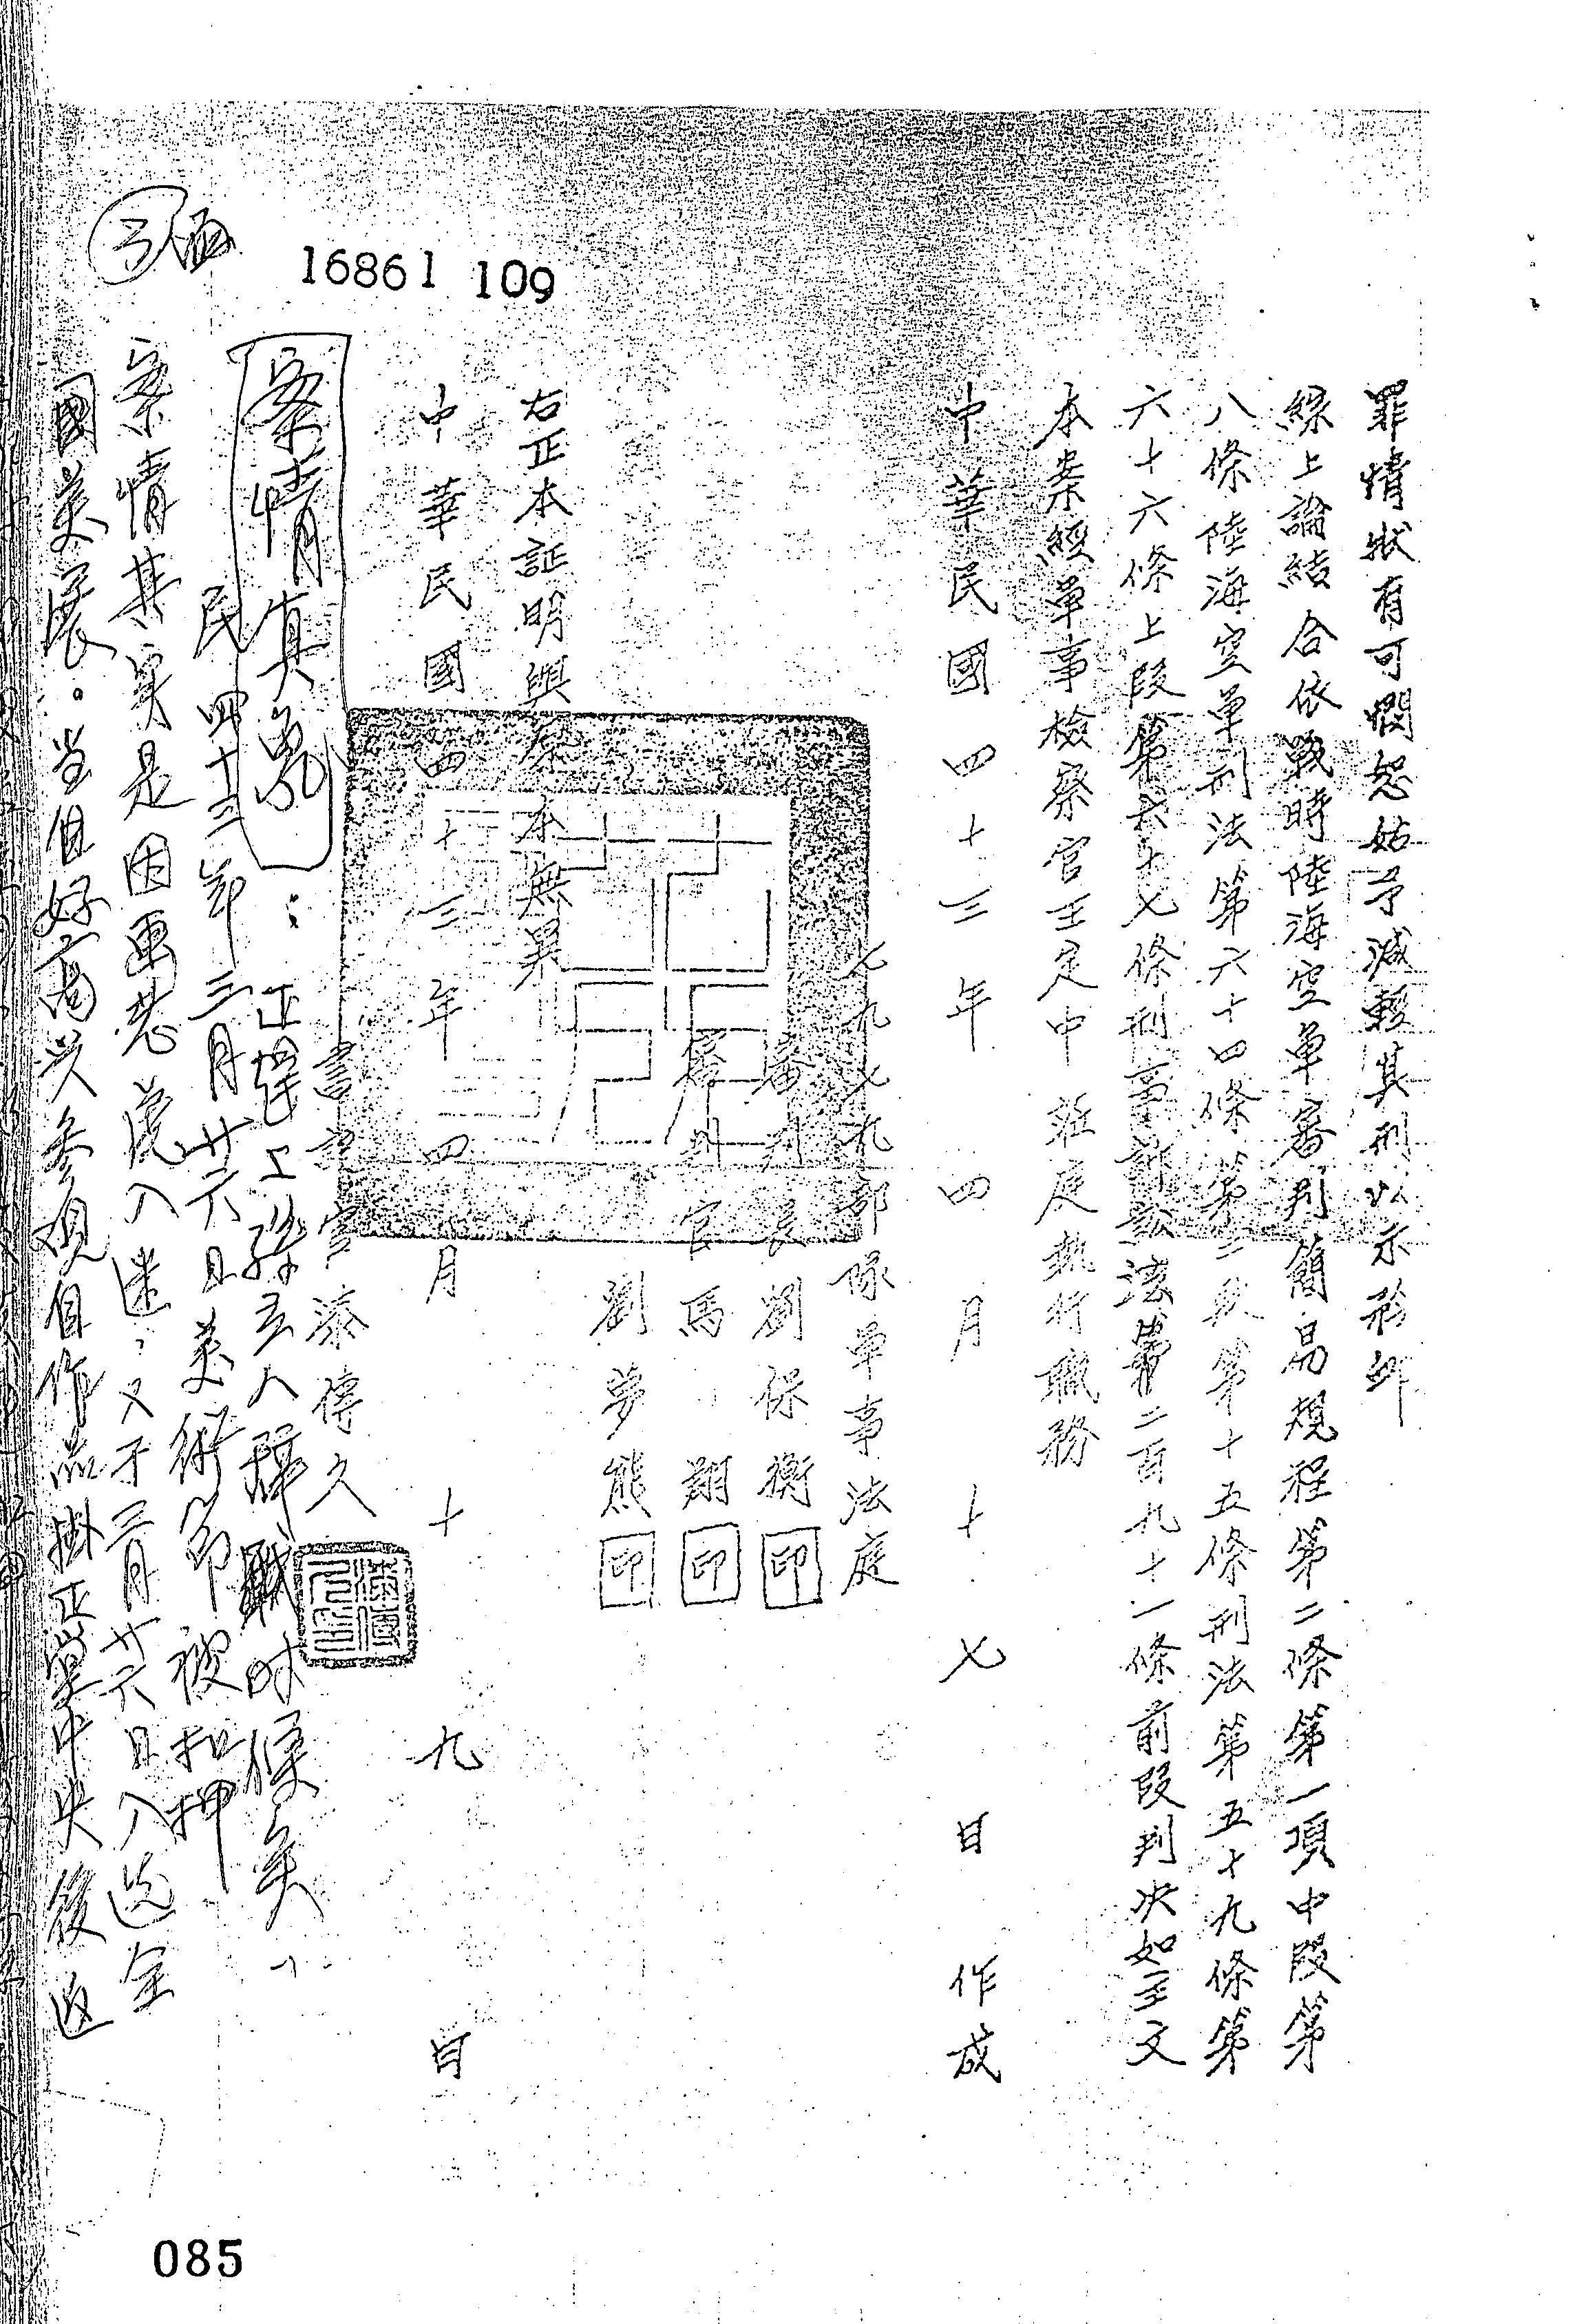 罪情狀有可憫恕姑予減輕其刑以示矜卹
綜上論結合依戰時陸海空軍審判簡易規程第二條第一項中段第
八條陸海空軍刑法第六十四條第二款第十五條刑法第五十九條第
六十六條上段第六十七條刑事訴訟法第二百九十一條前段判決如主文
本案經軍事檢察官王定中蒞庭執行職務
中華民國四十三年四月十七日作成
七九七九部隊軍事法庭
審判長劉保衡印
審判官馬翔印
劉夢熊印
右正本証明與原本無異
中華民國四十三年四月十九日
書記官漆傳久
案情真象：正準上孫立人辭職时候矣
民四十三年三月廿六日美術節被扣押
案情其實是因画芭蕾入迷；又于三月廿六日入选全
國美展。当日好高兴参观自作品掛正堂中央後返
16861 109
085